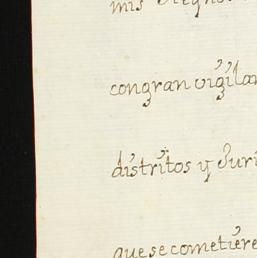 mis
congran vigilan
distritos y Juri
quesecometiere